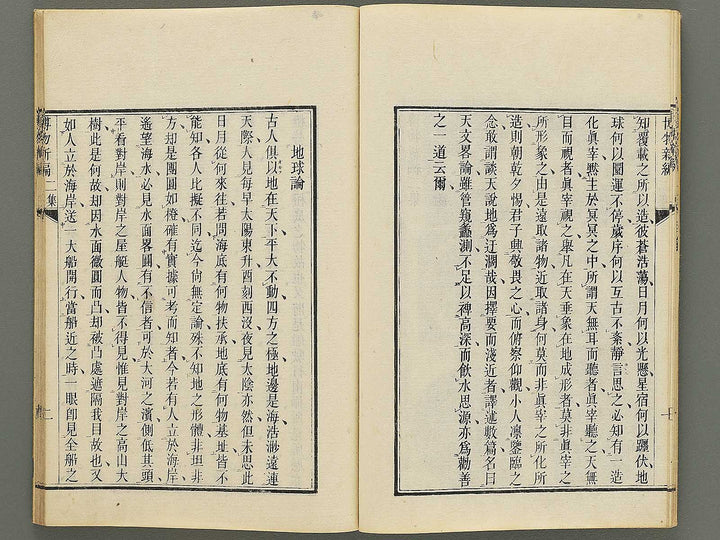 博物新編
知覆載之所以造彼蒼浩蕩日月何以光懸星宿何以躔伏地
球何以圜運不停歲序何以亙古不紊靜言思之必知有一造
化眞宰默主於冥冥之中所謂天無耳而聽者眞宰聽之天無
目而視者眞宰視之舉凡在天垂象在地成形者莫非眞宰之
所形象之由是遠取諸物近取諸身何莫而非眞宰之所化所
造則朝乾夕惕君子興敬畏之心而俯察仰觀小人凛鑒臨之
念敢謂談天說地爲迂濶哉因擇要而淺近者譯述數篇名曰
天文畧論雖管窺蠡測不足以裨高深而飲水思源亦爲勸善
之一道云爾
地球論
古人俱以地在天下平大不動四方之極地邊是海浩渺遠連
天際人見每早太陽東升酉刻西沒夜見太陰亦然但未思此
日月從何來往若問海底有何物扶承地底有何物基址皆不
能知各人比擬不同迄今尙無定論殊不知地之形體非坦非
方却是團圓如橙確有實據可考而知者今若有人立於海岸
遙望海水必見水面畧圓有不信者可於大河之濱側低其頭
平看對岸則對岸之屋艇人物皆不得見惟見對岸之高山大
樹此是何故却因水面微圓而凸却被凸處遮隔我目故也又
如人立於海岸送一大船開行當船近之時一眼卽見全船之
博物新編二集